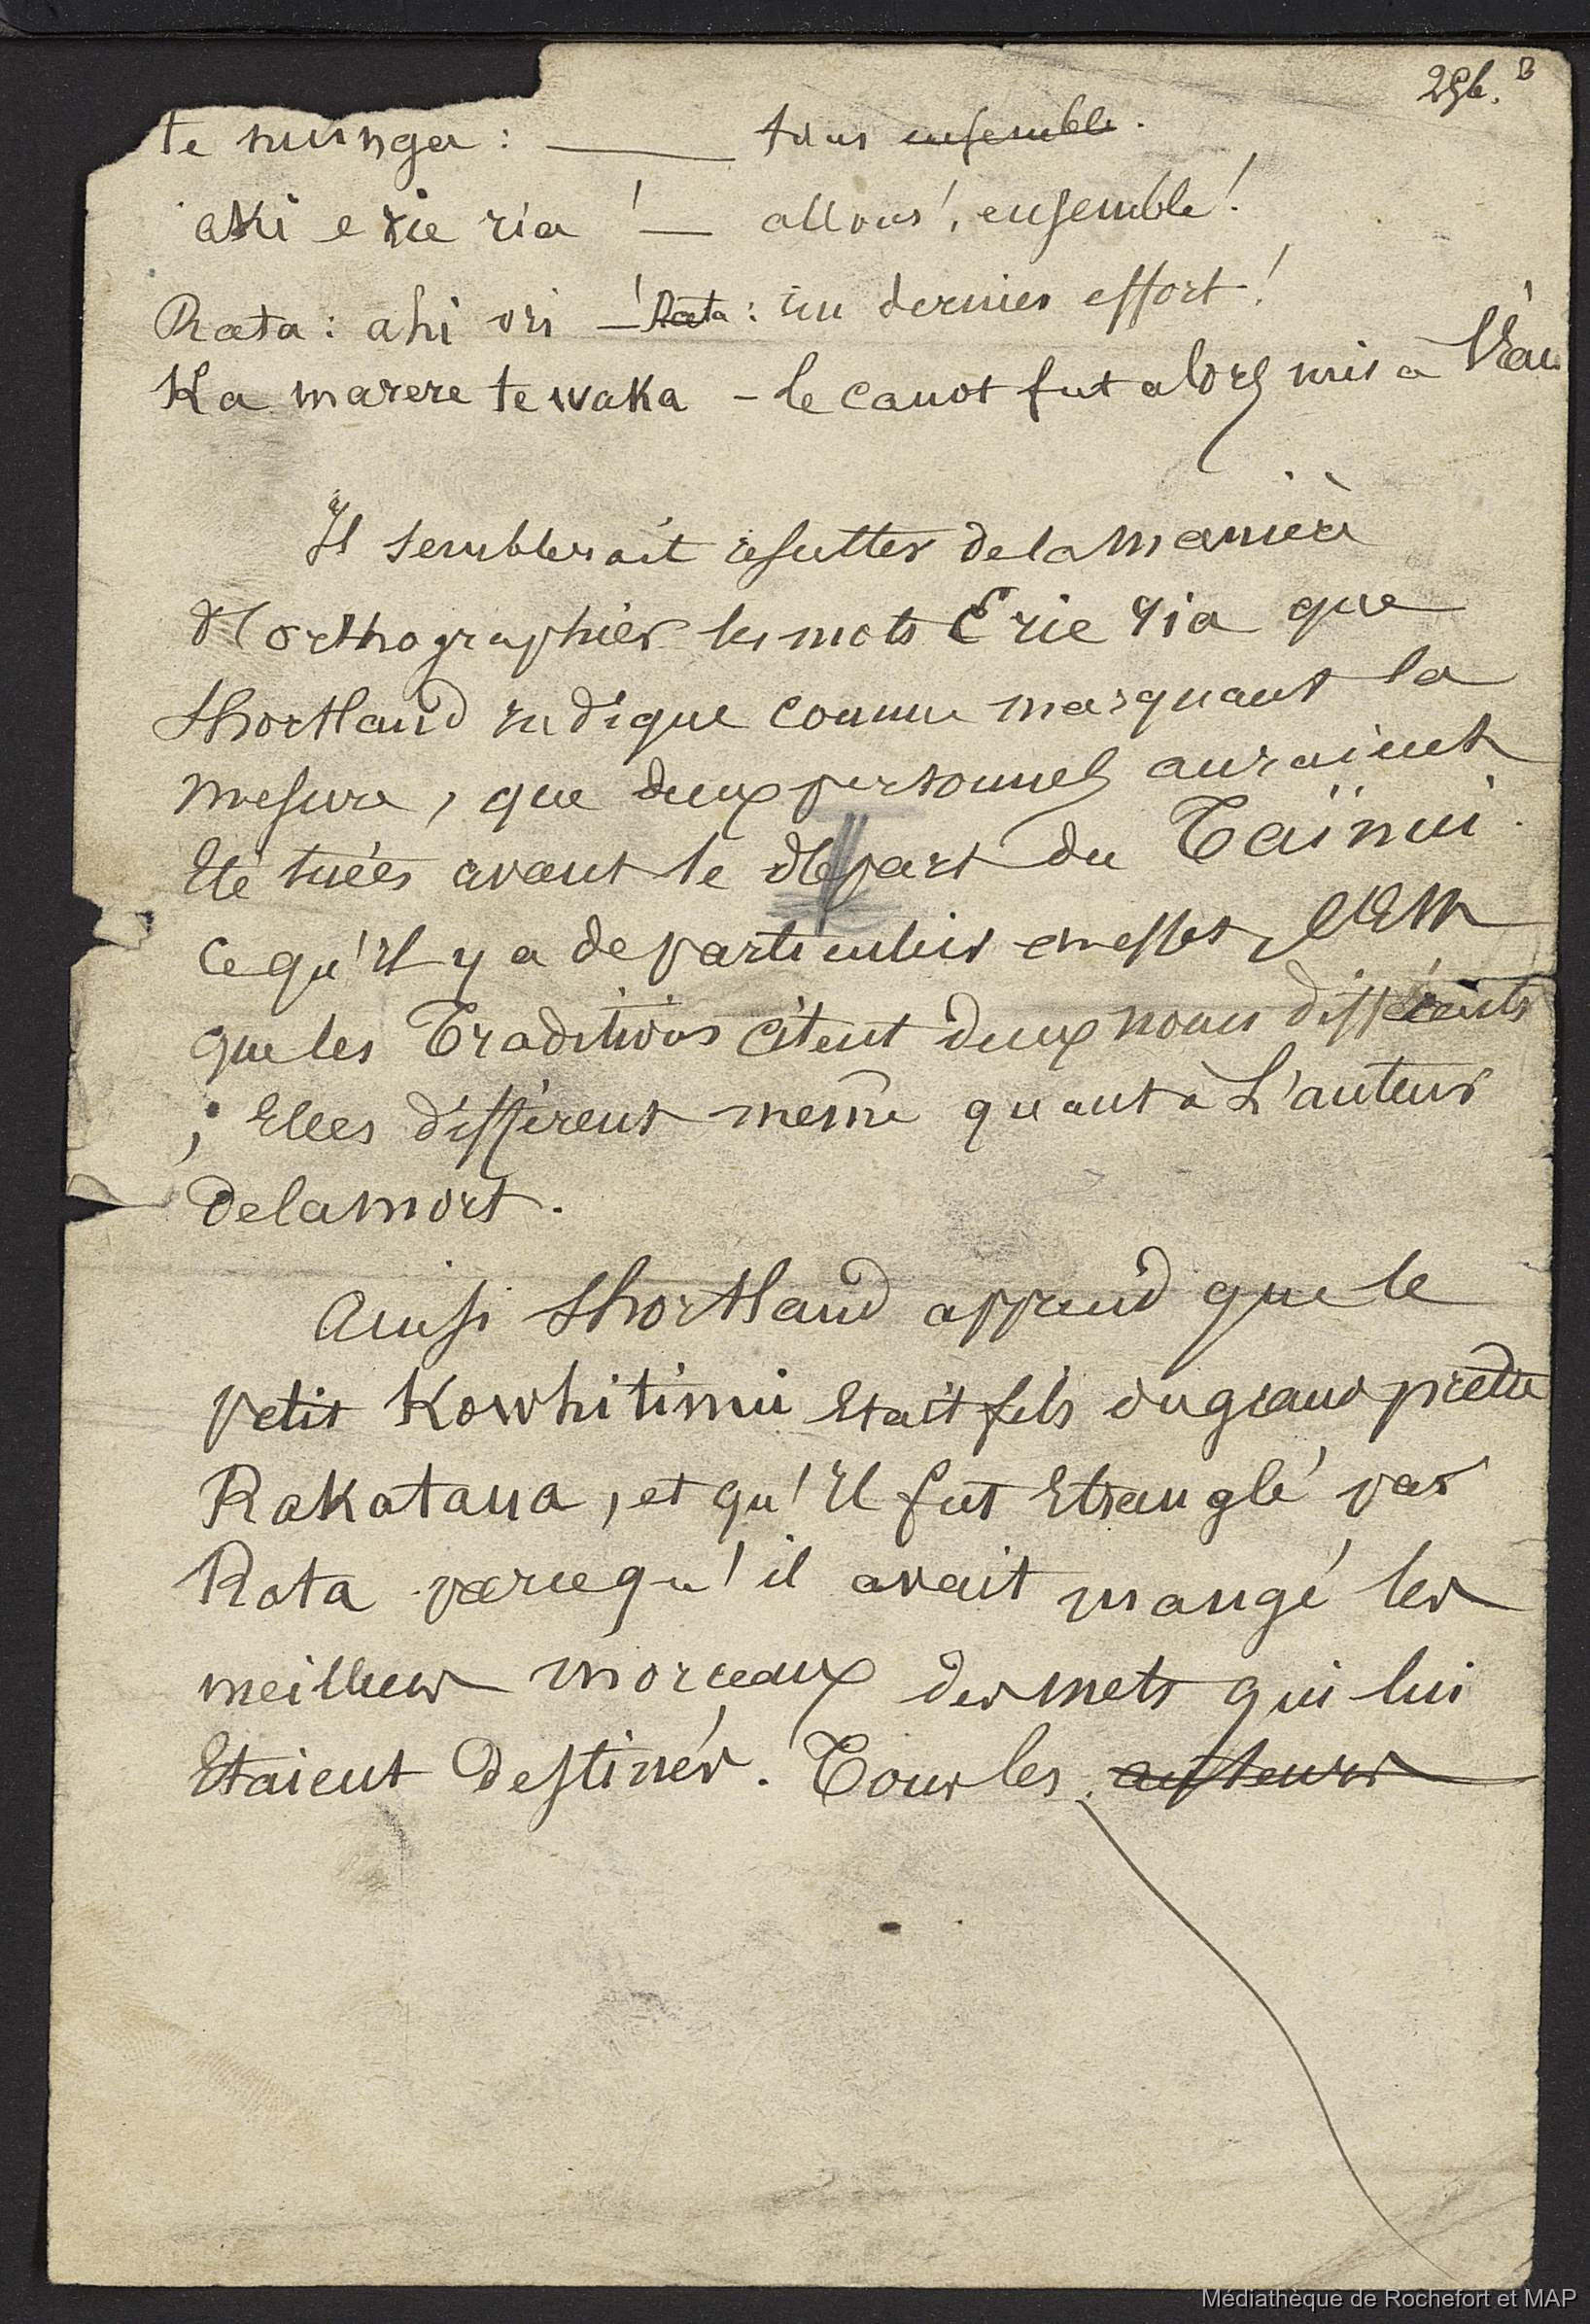 256. B
te nuinga : ——— tous ensemble.
aki e rie ria ! — allons !, ensemble !
Rata : ahi ori — ! Rata : un dernier effort !
Ka marere te waka - le canot fut alors mis à l'Eau
Il semblerait résulter de la manière
d'orthographier les mots E rie ria que
Shortland indique comme marquant la
mesure, que deux personnes auraient
Eté tuées avant le départ du Taïnui.
Ce qu'il y a de particulier en effet, c'Est
que les Traditions citent deux noms différents
; Elles diffèrent même quant à L'auteur
de la mort.
Ainsi Shortland apprend que le
petit Kowhitinui Etait fils du grand prêtre
Rakataua, et qu'il fut Etranglé par
Rata parcequ'il avait mangé les
meilleurs morceaux des mets qui lui
Etaient Destinés. Tous les auteurs
Médiathèque de Rochefort et MAP